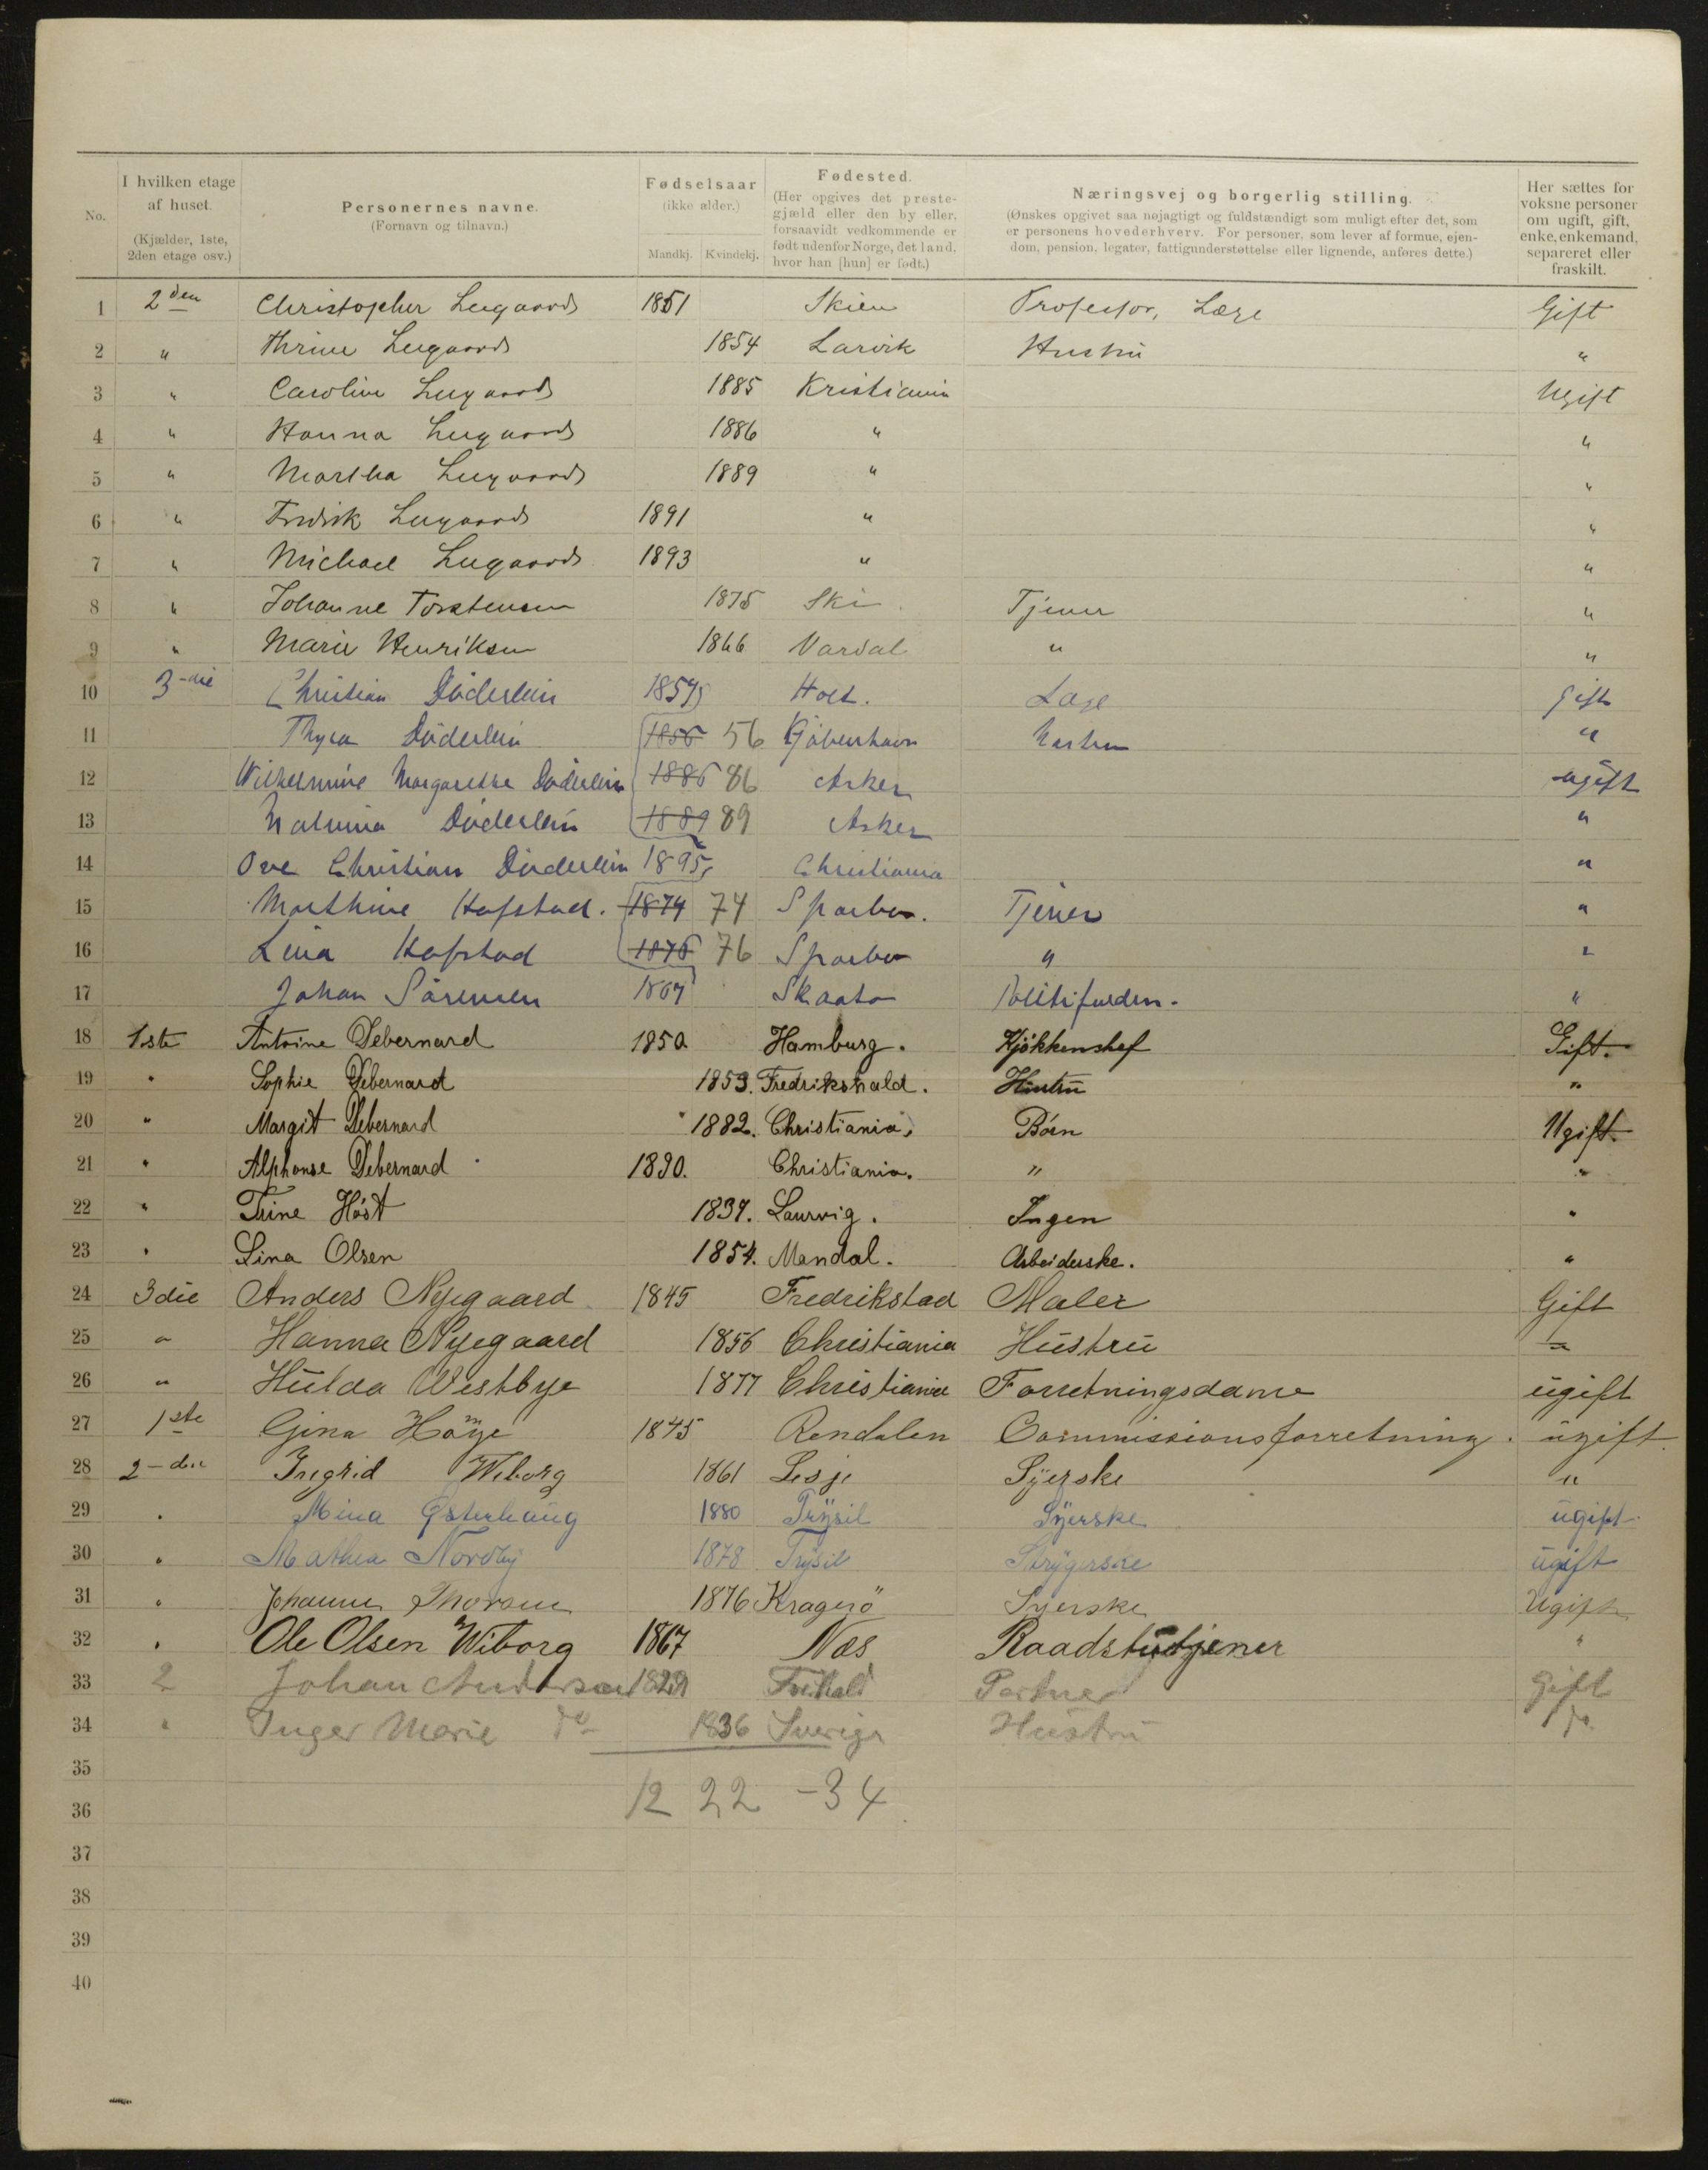 No. I hvilken etage af huset. (Kjælder, 1ste, 2den etage osv.) Personernes navne. (Fornavn og tilnavn.) Fødselsaar (ikke alder.) Mandkj. Kvindekj. Fødested. (Her opgives det prestegjæld eller den by eller, forsaavidt vedkommende er født udenfor Norge, det land, hvor han [hun] er født.) Næringsvej og borgerlig stilling. (Ønskes opgivet saa nøjagtigt og fuldstændigt som muligt efter det, som er personens hovederhverv. For personer, som lever af formue, ejendom, pension, legater, fattigunderstøttelse eller lignende, anføres dette.) Her sættes for voksne personer om ugift, gift, enke, enkemand, separeret eller fraskilt.
1 2den Christopher Leegaard 1851 Skien Professor, Læge Gift
2 " Thrine Leegaard 1854 Larvik Hustru "
3 " Caroline Leegaard 1885 Kristiania Ugift
4 " Hanna Leegaard 1886 " "
5 " Martha Leegaard 1889 " "
6 " Fredrik Leegaard 1891 " "
7 " Michael Leegaard 1893 " "
8 " Johanne Torstensen 1875 Ski. Tjener "
9 " Marie Henriksen 1866 Vardal " "
10 3-die Christian Döderlein 1854 Holt. Læge gift
11 Thyra Döderlein 56 Kjöbenhavn Hustru "
12 Wilhelmine Margarethe Döderlein 1886 86 Asker ugift
13 Malvina Döderlein 1889 89 Asker "
14 Ove Christian Döderlein 1895 Christiania "
15 Marthine Hafstad. 1874 74 Sparbu. Tjener "
16 Lina Hafstad 1876 76 Sparbu " "
17 Johan Sörensen 1867 Skaatø "
18 1ste Antoine Debernard 1850 Hamburg. Kjökkenshef Gift.
19 " Sophie Debernard 1853. Fredrikshald. Hustru "
20 " Margit Debernard 1882. Christiania. Börn Ugift.
21 " Alphonse Debernard 1890. Christiania. " "
22 " Trine Höst 1837. Laurvig. Ingen "
23 " Lina Olsen 1854. Mandal. Arbeiderske. "
24 3die Anders Nyegaard 1845 Fredrikstad Maler Gift
25 " Hanna Nyegaard 1856 Christiania Hustru "
26 " Hulda Westbye 1877 Christiania Forretningsdame ugift
27 1ste Gina Höye 1845 Rendalen Commissionsforretning. ugift.
28 2-den Ingrid Wiborg 1861 Lesje Syerske "
29 " Mina Østerhaug 1880 Trysil Syerske ugift
30 " Mathea Nordby 1878 Trysil Strygerske ugift
31 " Johanne Thorsen 1876 Kragerö Syerske Ugift
32 " Ole Olsen Wiborg 1867 Næs Raadstutjener "
33 2 Johan Andersen 1829 Frhald Portner Gift
34 " Inger Marie do 1836 Sverige Hustru do
35
12 22 - 34
36
37
38
39
40